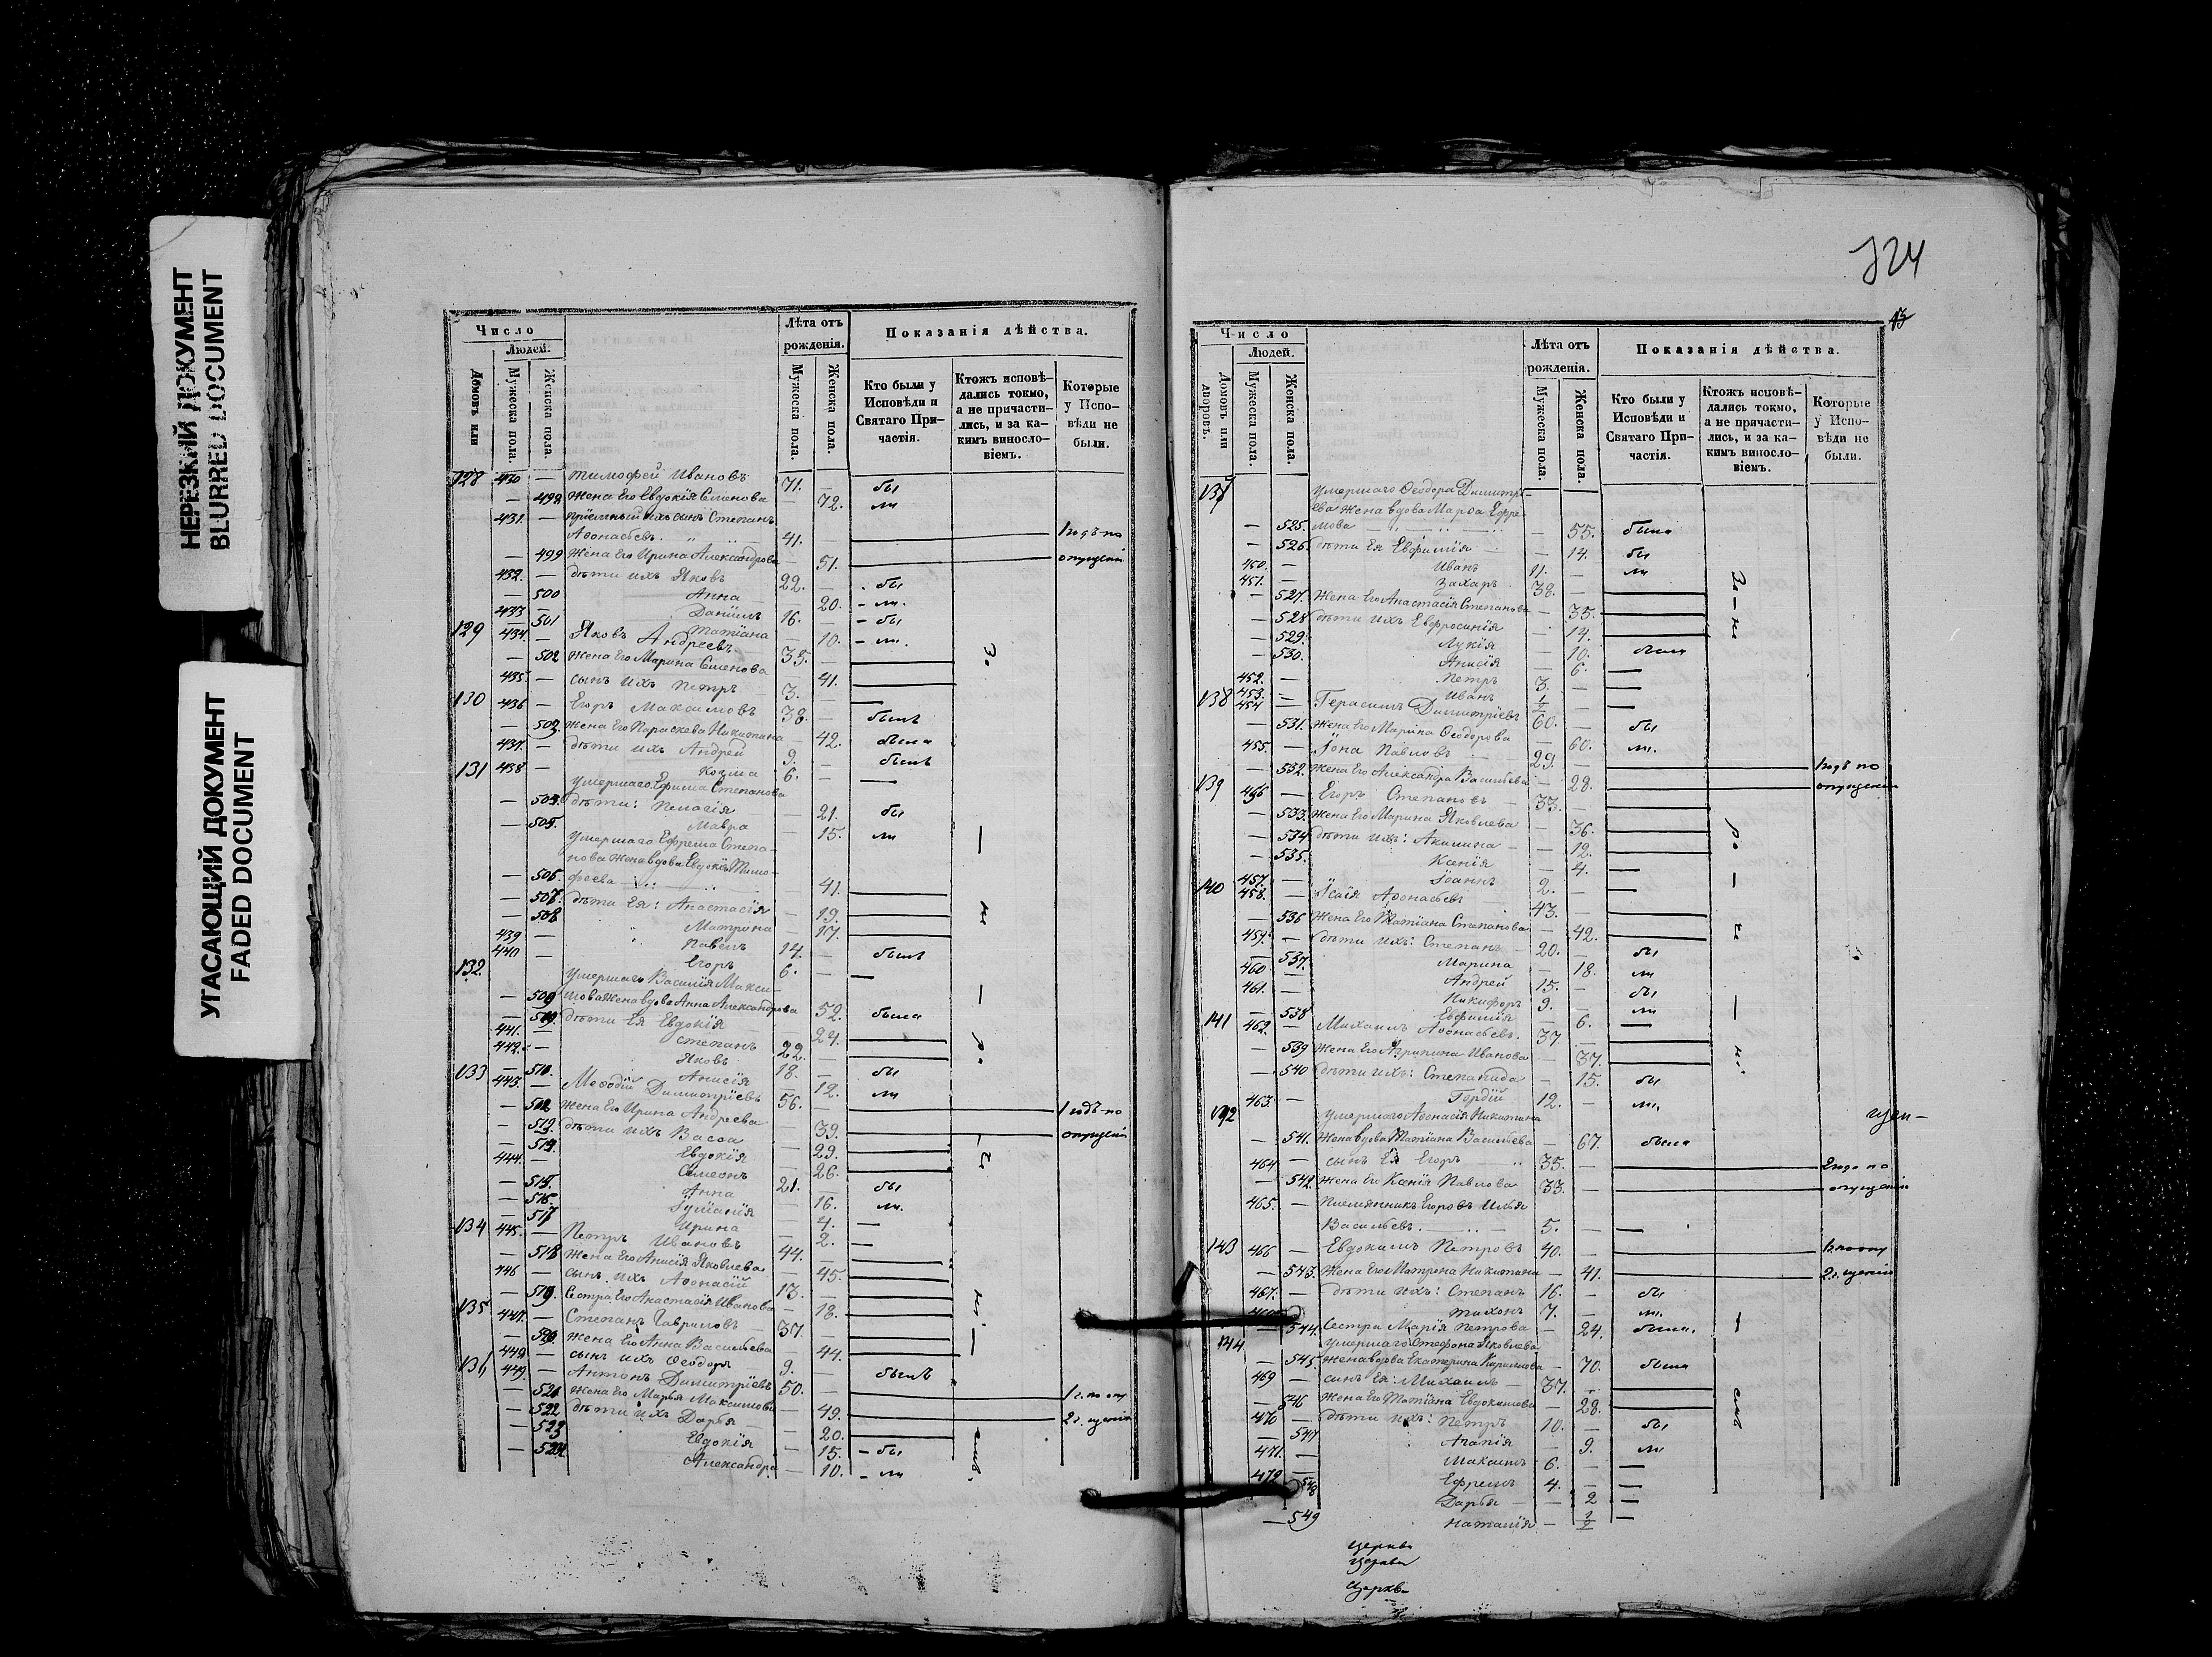 НЕРЕЗКИЙ ДОКУМЕНТ
BLURRED DOCUMENT
УГАСАЮЩИЙ ДОКУМЕНТ
FADED DOCUMENT
Число
Людей.
Домовъ или
Мужеска пола.
Женска пола.
Лѣта отъ рожденія.
Мужеска пола.
Женска пола.
Показанія дѣйства.
Кто были у Исповѣди и Святаго Причастія.
Ктожъ исповѣдались токмо, а не причастились, и за какимъ винословіемъ.
Которые у Исповѣди не были.
128 430 — Тимофей Ивановъ 71. — бы
— 498 жена Его Евдокія Сименова — 72. ли
431. — пріемный ихъ сынъ Степанъ
Аѳонасьевъ 41. — 1 годъ по
— 499 жена Его Ирина Александрова — 51. опущенію
432. — дѣти ихъ Яковъ 22. — бы
— 500 Анна — 20. ли.
433 — Даніилъ 16. — бы
— 501 Татіана — 10. ли.
129 434. — Яковъ Андреевъ 35. —
— 502 жена Его Марина Сименова — 41.
435. — сынъ ихъ Петръ 3. —
130 436 — Егоръ Максимовъ 38. — былъ
— 503. жена Его Параскева Никитина — 42. была
437. — дѣти ихъ Андрей 9. — былъ
438 — Козма 6. —
131 умершаго Ефима Степанова
— 504. дѣти: Пелагія — 21. бы
— 505. Мавра — 15. ли
умершаго Ефрема Степа-
нова жена вдова Евдокія Тимо-
— 506. феева — 41.
— 507. дѣти Ея: Анастасія — 19.
— 508 Матрона — 17.
439 — Павелъ 14. — былъ
440 — Егоръ 6. —
132. умершаго Василія Макси-
— 509 мова жена вдова Анна Александрова 52. была
— дѣти Ея Евдокія — 24.
441. — Степанъ 22. —
442. — Яковъ 18. — бы
— Анисія — 12. ли
133 443. — Меѳодій Димитріевъ 56. — 1 годъ по
— 512 жена Его Ирина Андреева — 39. опущенію
— 513. дѣти ихъ Васса — 29.
— 514. Евдокія — 26.
444. — Симеонъ 21. — бы
— 515. Анна — 16. ли.
— 516. Іуліанія — 4. —
— 517 Ирина — 2. —
134 445. — Петръ Ивановъ 44. —
— 518 жена Его Анисія Яковлева — 45.
446 — сынъ ихъ Аѳонасій 13. —
— 519. Сестра Его Анастасія Иванова — 18.
135 447. — Степанъ Гавриловъ 37. —
— 520 жена Его Анна Васильева — 44.
448. — сынъ ихъ Ѳеодоръ 9. — былъ
136 449. — Антонъ Димитріевъ 50. — 1 г. по опу
— 521 жена Его Марья Максимова — 49. 2 г. щенію
— 522 дѣти ихъ Дарья — 20.
— 523 Евдокія — 15. бы
— 524 Александра — 10. ли
324
43
Число
Людей.
Домовъ или дворовъ.
Мужеска пола.
Женска пола.
Лѣта отъ рожденія.
Мужеска пола.
Женска пола.
Показанія дѣйства.
Кто были у Исповѣди и Святаго Причастія.
Ктожъ исповѣдались токмо, а не причастились, и за какимъ винословіемъ.
Которые у Исповѣди не были.
137 умершаго Ѳеодора Димитрі-
ева жена вдова Марѳа Ефре-
— 525. мова — 55. была
— 526. дѣти Ея Евфимія — 14. бы
450. — Иванъ 11. — ли
451. — Захаръ 38. —
— 527. жена Его Анастасія Степанова — 35.
— 528 дѣти ихъ Евфросинія — 14.
— 529. Лукія — 10. была
— 530. Анисія — 6. —
452. — Петръ 3. —
453. — Иванъ 1/2 —
138 454 — Герасимъ Димитріевъ 60. — бы
— 531. жена Его Марина Ѳеодорова — 60. ли.
455. — Іона Павловъ 29. — 1 годъ по
— 532. жена Его Александра Васильева — 28. опущенію
139 456 — Егоръ Степановъ 33. —
— 533. жена Его Марина Яковлева — 36.
— 534 дѣти ихъ: Акилина — 12.
— 535. Ксенія — 4.
457. — Іоаннъ 2. —
140 458. — Исаія Аѳонасьевъ 43. —
— 536 жена Его Татіана Степанова — 42.
459. — дѣти ихъ: Степанъ 20. — бы
— 537. Марина — 18. ли
460 — Андрей 15. — бы
461. — Никифоръ 9. — ли
— 538 Евфимія — 6. —
141 462. — Михаилъ Аѳонасьевъ. 37 —
— 539 жена Его Агрипина Иванова — 37.
— 540 дѣти ихъ: Степанида — 15. бы
463. — Гордій 12. — ли.
142 умершаго Аѳонасія Никитина
— 541. жена вдова Татіана Васильева — 67. была
464 — сынъ Ея Егоръ 35. — 2 года по
— 542. жена Его Ксенія Павлова 33. — опущенію
465. — племянникъ Егоровъ Илья
Васильевъ. 5. —
143 466 — Евдокимъ Петровъ 40. —
— 543. жена Его Матрона Никитина — 41. 2 г. щенію
467. — дѣти ихъ: Степанъ 16. — бы
Тихонъ 7. — ли.
— 544. Сестра Марія Петрова — 24. была.
144 умершаго Стефана Яковлева
— 545. жена вдова Екатерина Кирилова — 70. была
469 — сынъ Ея: Михаилъ 37. —
— 546 жена Его Татіана Евдокимова — 28.
470 — дѣти ихъ: Петръ 10. — бы
— 547 Агапія — 9. ли
471. — Максимъ 6. —
472 — Ефремъ 4. —
548 Дарья — 2 —
— 549 Наталія — 1/2 —